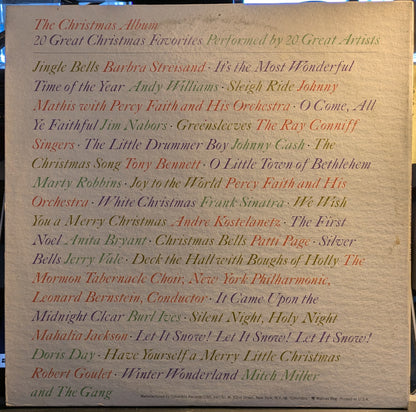 The Christmas Album
20 Great Christmas Favorites Performed by 20 Great Artists
Jingle Bells Barbra Streisand · It's the Most Wonderful
Time of the Year Andy Williams · Sleigh Ride Johnny
Mathis with Percy Faith and His Orchestra · O Come, All
Ye Faithful Jim Nabors · Greensleeves The Ray Conniff
Singers · The Little Drummer Boy Johnny Cash · The
Christmas Song Tony Bennett · O Little Town of Bethlehem
Marty Robbins · Joy to the World Percy Faith and His
Orchestra · White Christmas Frank Sinatra · We Wish
You a Merry Christmas Andre Kostelanetz · The First
Noel Anita Bryant · Christmas Bells Patti Page · Silver
Bells Jerry Vale · Deck the Hall with Boughs of Holly The
Mormon Tabernacle Choir, New York Philharmonic,
Leonard Bernstein, Conductor · It Came Upon the
Midnight Clear Burl Ives · Silent Night, Holy Night
Mahalia Jackson · Let It Snow! Let It Snow! Let It Snow!
Doris Day · Have Yourself a Merry Little Christmas
Robert Goulet · Winter Wonderland Mitch Miller
and The Gang
Manufactured by Columbia Records